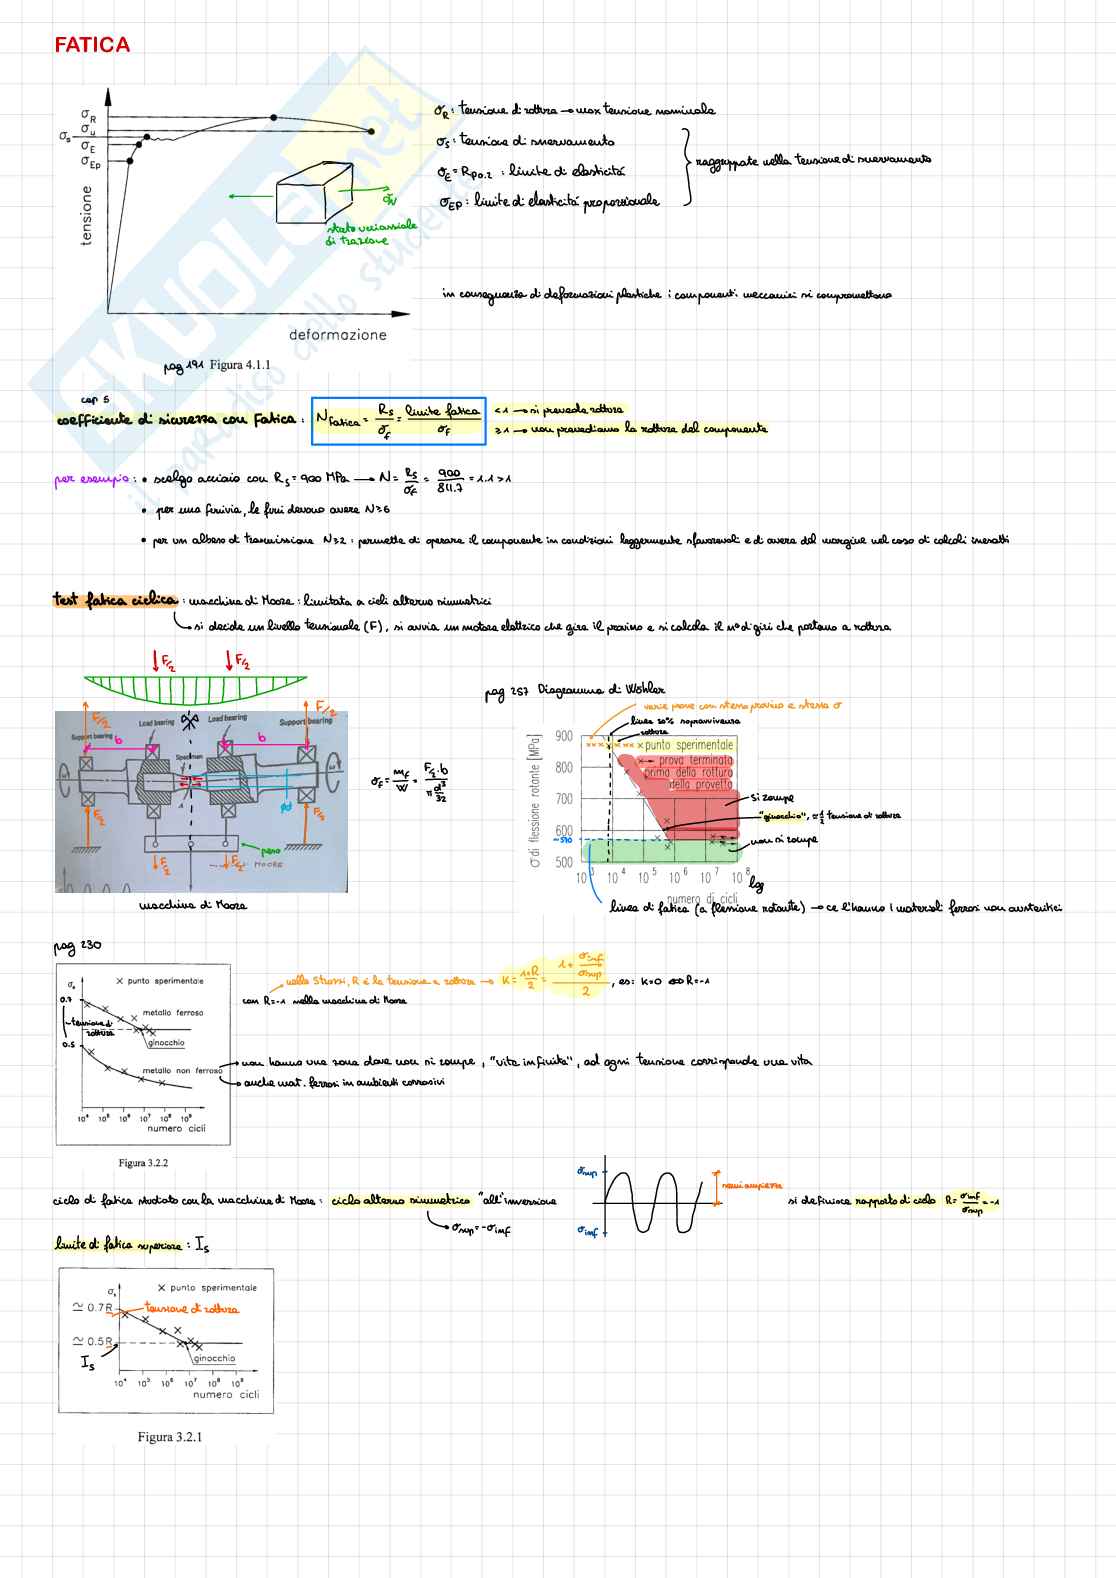 FATICA
σR
σu
σs
σE
σEp
tensione
deformazione
σN
stato uniassiale
di trazione
pag 191 Figura 4.1.1
σR: tensione di rottura → max tensione nominale
σS: tensione di snervamento
σE = Rp0.2 : limite di elasticità
σEP: limite di elasticità proporzionale
raggruppate nella tensione di snervamento
in conseguenza di deformazioni plastiche i componenti meccanici si compromettono
SKUOLA.net
il paradiso dello studente
cap 5
coefficiente di sicurezza con Fatica : Nfatica = RS/σf = limite fatica/σF
<1 → si prevede rottura
≥1 → non prevediamo la rottura del componente
per esempio : • scelgo acciaio con RS = 900 MPa → N = RS/σF = 900/811.7 = 1.1 > 1
• per una funivia, le funi devono avere N≥6
• per un albero di trasmissione N≥2 : permette di operare il componente in condizioni leggermente sfavorevoli e di avere del margine nel caso di calcoli inesatti
test fatica ciclica : macchina di Moore : limitata a cicli alterno simmetrici
si decide un livello tensionale (F), si avvia un motore elettrico che gira il provino e si calcola il n° di giri che portano a rottura
F/2 F/2
F/2 F/2
Load bearing Load bearing
Support bearing Support bearing
b b
Specimen
ød
F/2 F/2
peso
F/2 F/2
MOORE
macchina di Moore
σF = MF/W = F/2·b / π d³/32
pag 257 Diagramma di Wöhler
varie prove con stesso provino e stessa σ
linea 50% sopravvivenza
rottura
σ di flessione rotante [MPa]
900
800
700
600
~570
500
punto sperimentale
prova terminata
prima della rottura
della provetta
si rompe
"ginocchio", ≃ 1/2 tensione di rottura
non si rompe
10³ 10⁴ 10⁵ 10⁶ 10⁷ 10⁸
log
numero di cicli
linea di fatica (a flessione rotante) → ce l'hanno i materiali ferrosi non austenitici
pag 230
× punto sperimentale
0.7
metallo ferroso
tensione di
rottura
ginocchio
0.5
metallo non ferroso
10⁴ 10⁵ 10⁶ 10⁷ 10⁸ 10⁹
numero cicli
Figura 3.2.2
nello Strozzi, R è la tensione a rottura → K = 1+R/2 = 1 + σinf/σsup / 2 , es: K=0 ⇔ R=-1
con R=-1 nella macchina di Moore
non hanno una zona dove non si rompe, "vita infinita", ad ogni tensione corrisponde una vita
anche mat. ferrosi in ambienti corrosivi
ciclo di fatica studiato con la macchina di Moore : ciclo alterno simmetrico "all'inversione
σsup = -σinf
σsup
σinf
semiampiezza
si definisce rapporto di ciclo R = σinf/σsup = -1
limite di fatica superiore : IS
× punto sperimentale
≃ 0.7R
tensione di rottura
≃ 0.5R
IS
ginocchio
10⁴ 10⁵ 10⁶ 10⁷ 10⁸ 10⁹
numero cicli
Figura 3.2.1